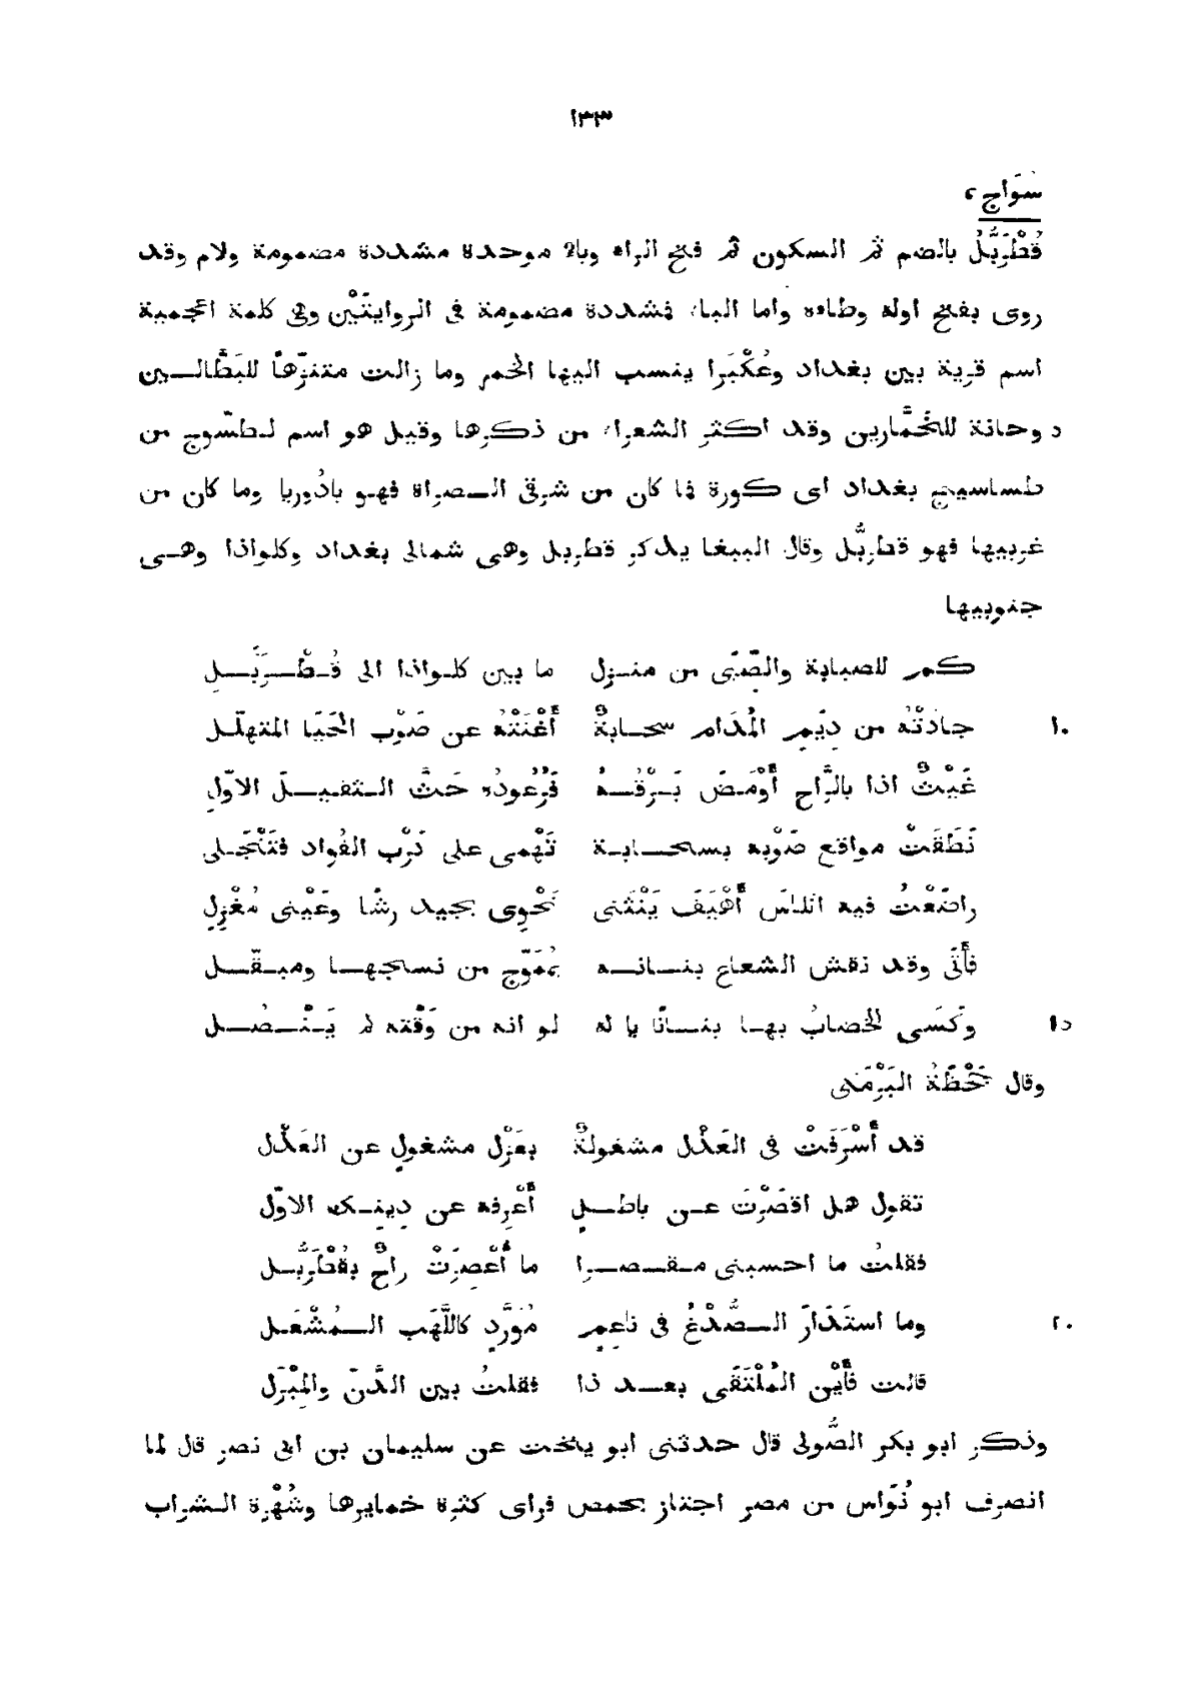 ١٣٣
سُوَاج،
قُطْرَبُّلُ بالضم ثم السكون ثم فتح الراء وباء موحدة مشددة مضمومة ولام وقد
روى بفتح اوله وطاءه واما الباء فشددة مضمومة فى الروايتَيْن وهى كلمة اعجمية
اسم قرية بين بغداد وعُكْبَرا ينسب اليها الخمر وما زالت متنزّهاً للبَطَّالــين
د وحانة للخَمَّارين وقد اكثر الشعراء من ذكرها وقيل هو اسم لطسّوج من
طساسيج بغداد اى كورة فما كان من شرقى الـصراة فهو بادُوريا وما كان من
غربيها فهو قطربُّل وقال الببغا يذكر قطربل وهى شمالى بغداد وكلواذا وهـى
جنوبيها
كـم للصبابة والصِّبَى من منـزل ما بين كلـواذا الى قُـطْـرَبُّـل
١٠ جادَتْه من دِيَمِ المُدَام سحـابةٌ أَغْنَتْه عن صَوْب الحَيَا المتهلّـل
غَيْثٌ اذا بالرَّاح أَوْمَـضَ بَـرْقُـهُ فَرُعُودُه حَثَّ الـثقيـل الاوّلِ
نَطَقَتْ مواقع صَوْبه بسحـابـة تَهْمى على تَرْب الفُواد فتَنْجَـلى
راضَعْتُ فيه الكاسَ أَهْيَفَ يَنْثَنى نَحْوِى بجيد رشًا وعَيْنى مُغْزِلِ
فأَتَى وقد نقش الشعاع بنـانـه بمُمَوّج من نسجهـا ومبـقّـل
١٥ وكَسَى الخضابُ بهـا بنـانًا يا له لو انه من وَقْته لم يَـنْـصُـل
وقال جَحْظَةُ البَرْمَكى
قد أَسْرَفَتْ فى العَذْل مشغولةٌ بعَزْل مشغولٍ عن العَذْل
تقول هل اقصَرْتَ عـن باطـلٍ أَعْرِفه عن دِينِـكِه الاوّل
فقلتُ ما احسبنى مـقـصـرا ما أُعْصِرَتْ راحٌ بقُطْرَبُّـل
٢٠ وما استَدَارَ الـصُّدْغُ فى ناعمٍ مُوَرَّدٍ كاللَّهَب الـمُشْعَـل
قالت فأَيْن المُلْتَقَى بعـد ذا فقلتُ بين الدَّنّ والمِبْزَل
وذكر ابو بكر الصُّولى قال حدثنى ابو يخت عن سليمان بن ابى نصر قال لما
انصرف ابو نُوَاس من مصر اجتاز بحمص فراى كثرة خمايرها وشُهْرة الـشراب